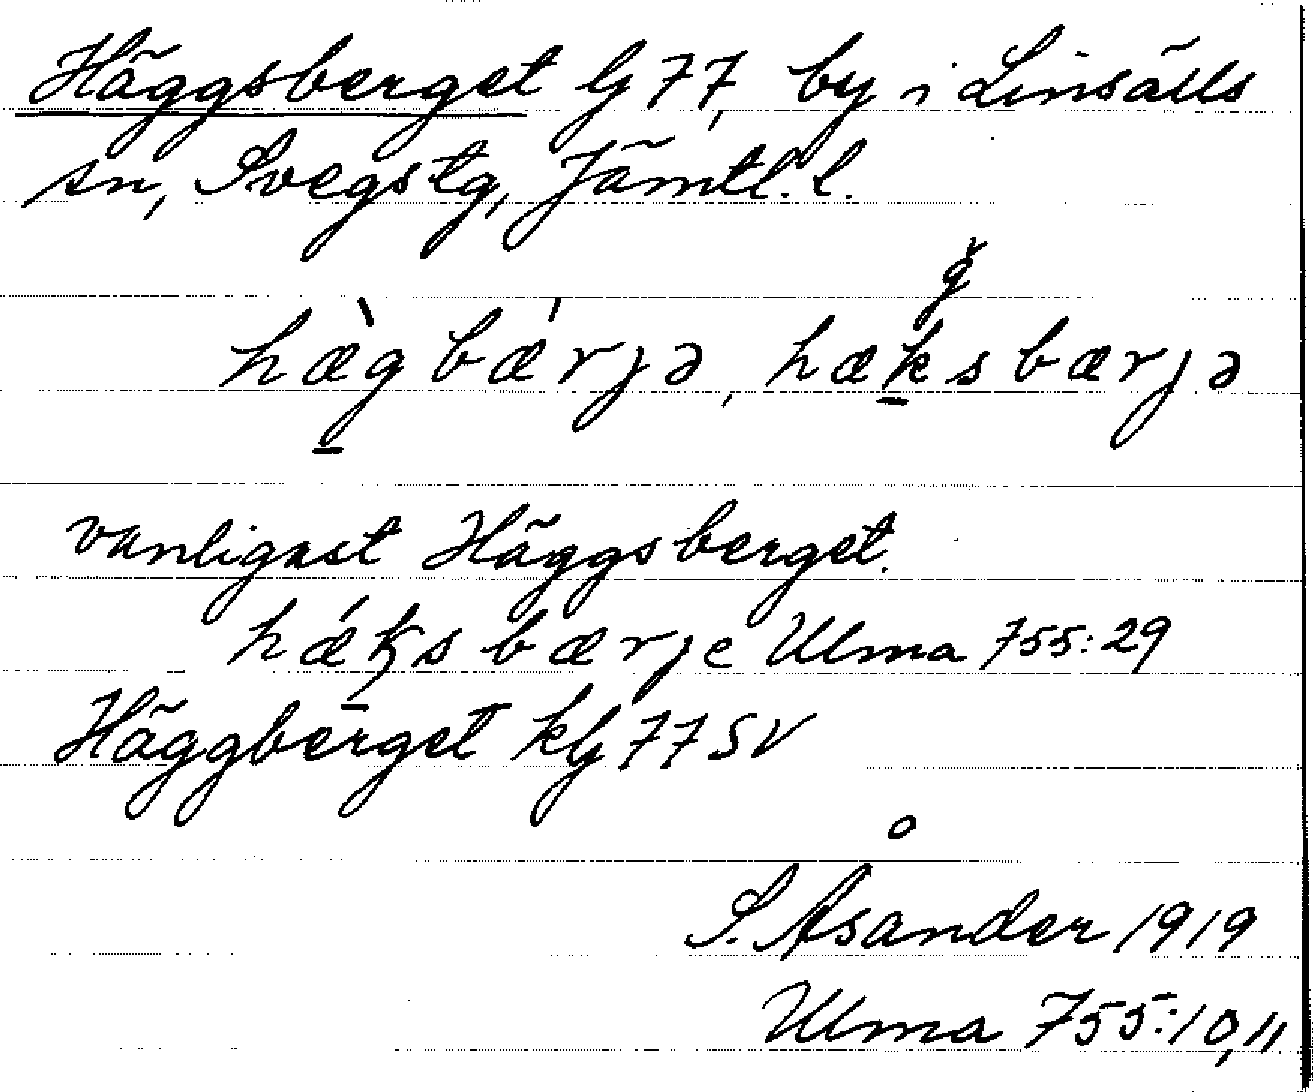 Häggsberget G 77, by i Linsälls
sn, Svegs tg, Jämtl. l.
hæ̀gbǽrjə, hæksbærjə
vanligast Häggsberget.
hǽksbærje Ulma 755:29
Häggberget kG 77 SV
S. Åsander 1919
Ulma 755:10,11